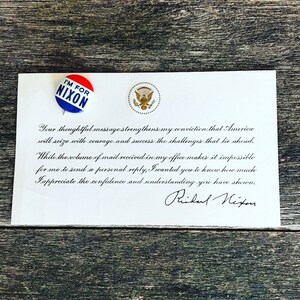 I'M FOR
NIXON
Your thoughtful message strengthens my conviction that America
will seize with courage and success the challenges that lie ahead.
While the volume of mail received in my office makes it impossible
for me to send a personal reply, I wanted you to know how much
I appreciate the confidence and understanding you have shown.
Richard Nixon